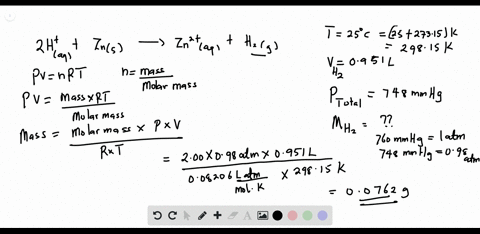 2H⁺(aq) + Zn(s) ⟶ Zn²⁺(aq) + H₂(g)
PV = nRT n = mass / Molar mass
PV = Mass × RT / Molar mass
Mass = Molar mass × P × V / R × T
= 2.00 × 0.98 atm × 0.951 L / 0.08206 L atm / mol. K × 298.15 K
= 0.0762 g
T = 25°C = (25 + 273.15) K
= 298.15 K
V H₂ = 0.951 L
P Total = 748 mmHg
M H₂ = ??
760 mmHg = 1 atm
748 mmHg = 0.98 atm